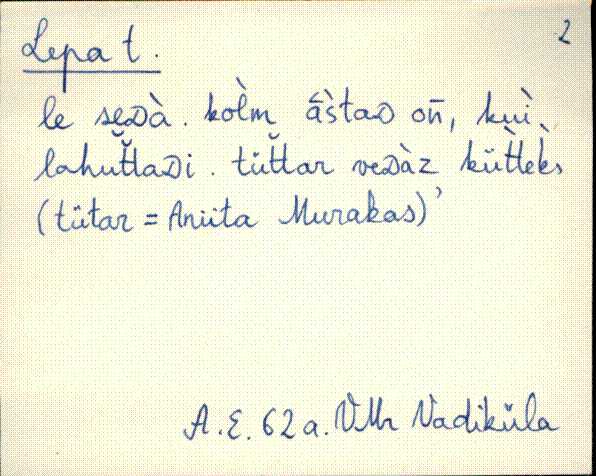 2
Lepa t.
le seᴅà. kol̀m ās̀taᴅ on̄, kui
lahut̆t̆aᴅi. tüt̆t̆ar veᴅàz küt̀t̀ek̀s
(tütar = Aniita Murakas)’
A.E. 62 a. VMr Vadiküla